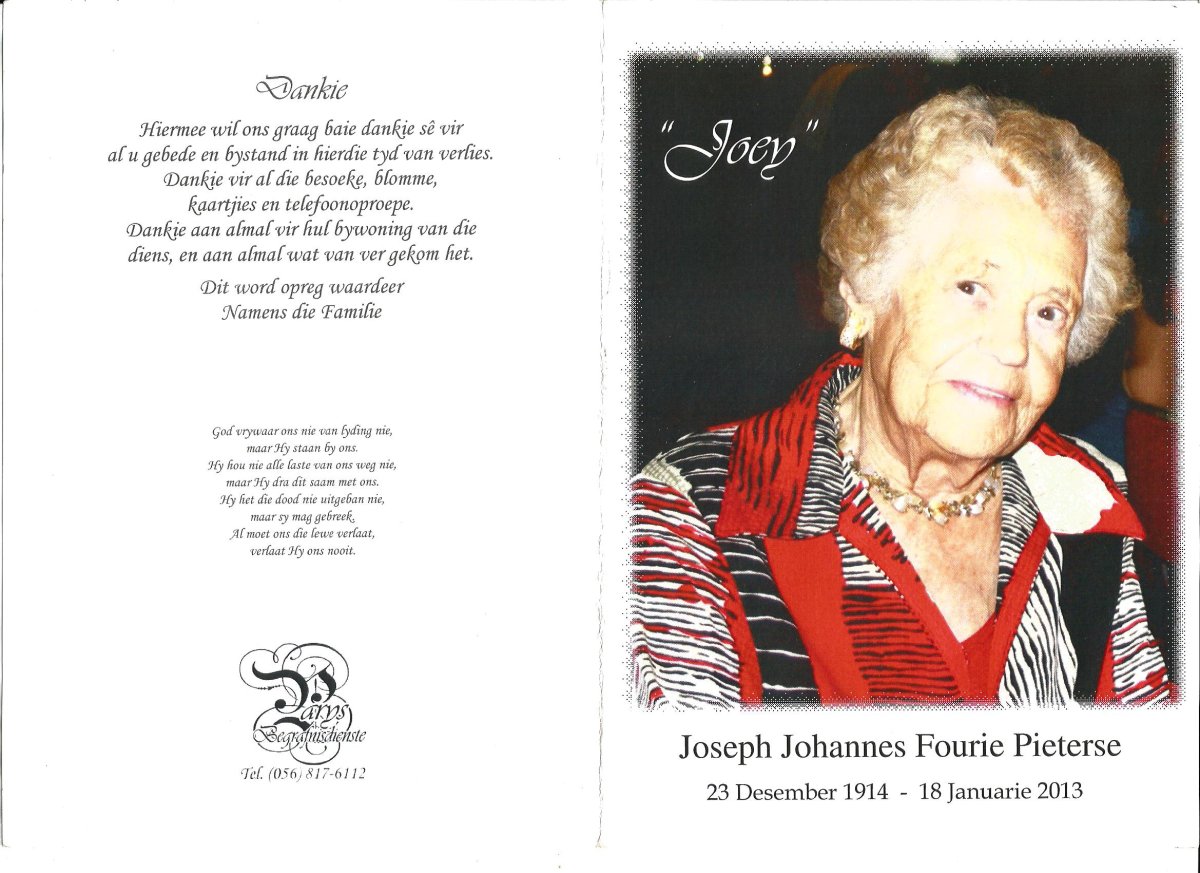 Dankie
Hiermee wil ons graag baie dankie sê vir
al u gebede en bystand in hierdie tyd van verlies.
Dankie vir al die besoeke, blomme,
kaartjies en telefoonoproepe.
Dankie aan almal vir hul bywoning van die
diens, en aan almal wat van ver gekom het.
Dit word opreg waardeer
Namens die Familie
God vrywaar ons nie van lyding nie,
maar Hy staan by ons.
Hy hou nie alle laste van ons weg nie,
maar Hy dra dit saam met ons.
Hy het die dood nie uitgeban nie,
maar sy mag gebreek.
Al moet ons die lewe verlaat,
verlaat Hy ons nooit.
Parys
Begrafnisdienste
Tel. (056) 817-6112
"Joey"
Joseph Johannes Fourie Pieterse
23 Desember 1914 - 18 Januarie 2013